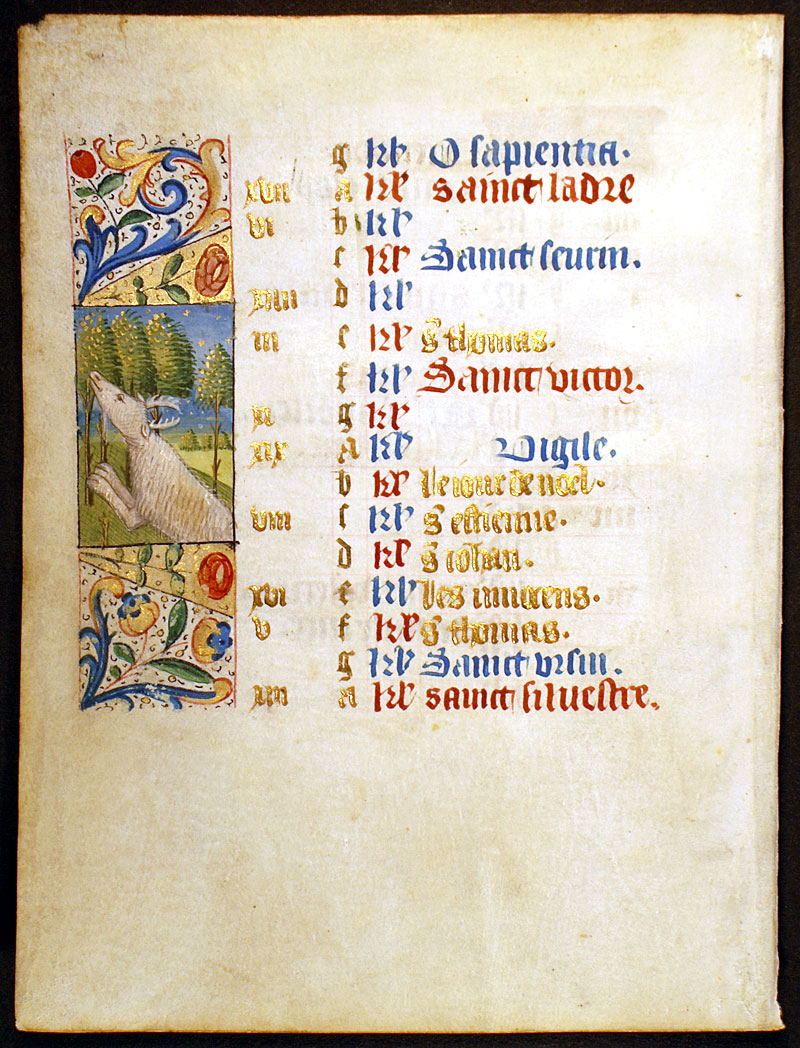 g kl O sapientia.
xvii a kl sainct ladre
vi b kl
c kl Sainct seurin.
xiiii d kl
iii e kl S thomas.
f kl Sainct victor.
xi g kl
xix a kl Vigile.
b kl Le iour de noel.
viii c kl S estienne.
d kl S iehan.
xvi e kl Les innocens.
v f kl S thomas.
g kl Sainct vrsin.
xiii a kl sainct siluestre.